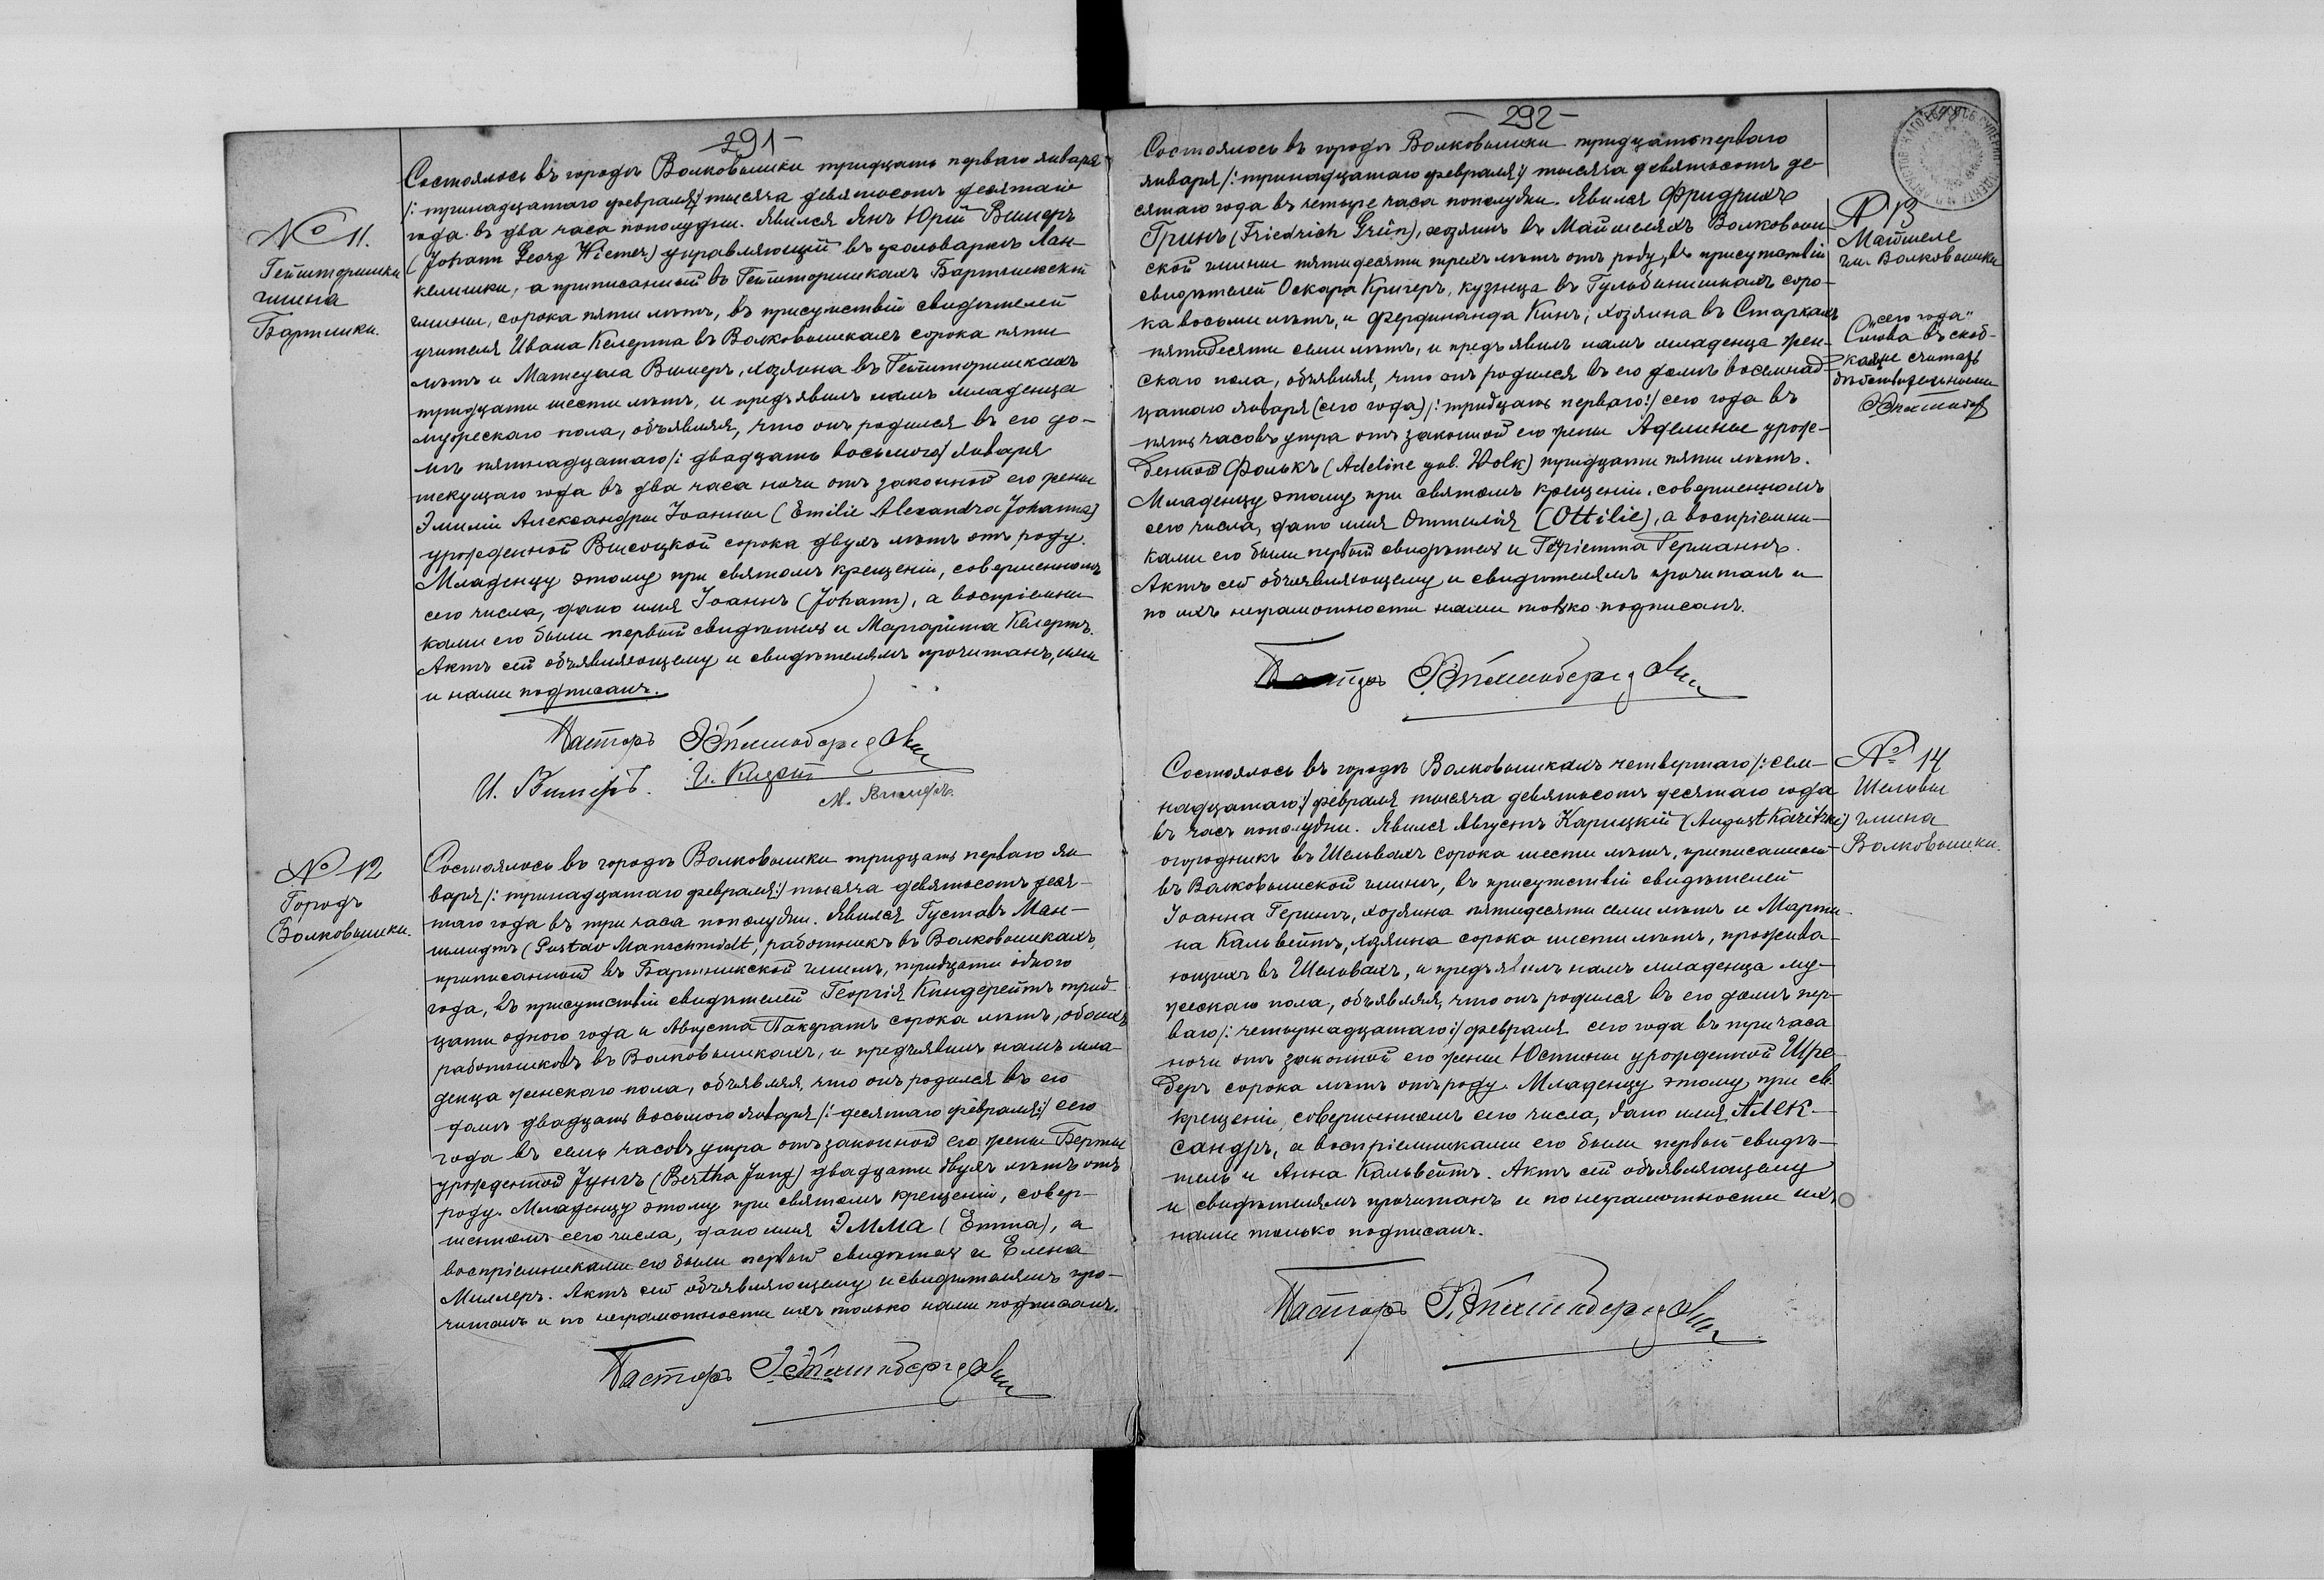 291
№ 11.
Гейшторишки
гмина
Бартники.
Состоялось въ городѣ Волковышки тридцать перваго января
/: тринадцатаго февраля :/ тысяча девятьсотъ десятаго
года въ два часа пополудни. Явился Янъ Юрій Вимеръ
(Johann Georg Wiemer) управляющій въ фольваркѣ Лан-
келишки, а приписанный въ Гейшторишкахъ Бартникской
гмины, сорока пяти лѣтъ, въ присутствіи свидѣтелей
учителя Ивана Келерта въ Волковышкахъ сорока пяти
лѣтъ и Матеуша Вимеръ, хозяина въ Гейшторишкахъ
тридцати шести лѣтъ, и предъявилъ намъ младенца
мужескаго пола, объявляя, что онъ родился въ его до-
мѣ пятнадцатаго /: двадцать восьмого :/ января
текущаго года въ два часа ночи отъ законной его жены
Эмиліи Александры Іоанны (Emilie Alexandra Johanna)
урожденной Высоцкой сорока двухъ лѣтъ отъ роду.
Младенцу этому при святомъ крещеніи, совершенномъ
сего числа, дано имя Іоаннъ (Johann), а воспріемни-
ками его были первый свидѣтель и Маргарита Келертъ.
Актъ сей объявляющему и свидѣтелямъ прочитанъ, ими
и нами подписанъ.
Пасторъ
И. Вимеръ. И. Келертъ
М. Вимеръ.
№ 12
Городъ
Волковышки.
Состоялось въ городѣ Волковышки тридцать перваго ян
варя /: тринадцатаго февраля :/ тысяча девятьсотъ деся-
таго года въ три часа пополудни. Явился Густавъ Ман-
шмидтъ (Gustav Manschmidt, работникъ въ Волковышкахъ,
приписанный въ Бартникской гминѣ, тридцати одного
года, въ присутствіи свидѣтелей Георгія Киндерейтъ трид-
цати одного года и Августа Пакератъ сорока лѣтъ, обоихъ
работниковъ въ Волковышкахъ, и предъявилъ намъ мла-
денца женскаго пола, объявляя, что онъ родился въ его
домѣ двадцать восьмого января /: десятаго февраля :/ сего
года въ семь часовъ утра отъ законной его жены Берты
урожденной Јунгъ (Bertha Jung) двадцати двухъ лѣтъ отъ
роду. Младенцу этому при святомъ крещеніи, совер-
шенномъ сего числа, дано имя Эмма (Emma), а
воспріемниками его были первый свидѣтель и Елена
Миллеръ. Актъ сей объявляющему и свидѣтелямъ про-
читанъ и по неграмотности ихъ только нами подписанъ.
Пасторъ
292
Состоялось въ городѣ Волковышки тридцать перваго
января /: тринадцатаго февраля :/ тысяча девятьсотъ де-
сятаго года въ четыре часа пополудни. Явился Фридрихъ
Гринъ (Friedrich Grün), хозяинъ въ Майшеляхъ Волковыш-
ской гмины пятидесяти трехъ лѣтъ отъ роду, въ присутствіи
свидѣтелей Оскара Кригеръ, кузнеца въ Гульбинишкахъ соро-
ка восьми лѣтъ, и Фердинанда Кинъ, хозяина въ Старкахъ
пятидесяти семи лѣтъ, и предъявилъ намъ младенца жен-
скаго пола, объявляя, что онъ родился въ его домѣ восемнад-
цатаго января (сего года) /: тридцать перваго :/ сего года въ
пять часовъ утра отъ законной его жены Аделины урож-
денной Фолькъ (Adeline geb. Volk) тридцати пяти лѣтъ.
Младенцу этому при святомъ крещеніи, совершенномъ
сего числа, дано имя Оттилія (Ottilie), а воспріемни-
ками его были первый свидѣтель и Генріетта Германнъ.
Актъ сей объявляющему и свидѣтелямъ прочитанъ и
по ихъ неграмотности нами только подписанъ.
Пасторъ
№ 13
Майшеле
гм. Волковышки
"сего года"
Слова въ скоб-
кахъ не считать
дѣйствительными
Состоялось въ городѣ Волковышкахъ четвертаго /: сем-
надцатаго :/ февраля тысяча девятьсотъ десятаго года
въ часъ пополудни. Явился Августъ Карицкій (August Karitzki)
огородникъ въ Шельвахъ сорока шести лѣтъ, приписанный
въ Волковышской гминѣ, въ присутствіи свидѣтелей
Іоанна Герингъ, хозяина пятидесяти семи лѣтъ и Марти-
на Кальвейтъ, хозяина сорока шести лѣтъ, прожива-
ющихъ въ Шельвахъ, и предъявилъ намъ младенца му-
жескаго пола, объявляя, что онъ родился въ его домѣ пер-
ваго /: четырнадцатаго :/ февраля сего года въ три часа
ночи отъ законной его жены Юстины урожденной Шре-
деръ сорока лѣтъ отъ роду. Младенцу этому, при св.
крещеніи, совершенномъ сего числа, дано имя Алек-
сандръ, а воспріемниками его были первый свидѣ-
тель и Анна Кальвейтъ. Актъ сей объявляющему
и свидѣтелямъ прочитанъ и по неграмотности ихъ
нами только подписанъ.
Пасторъ
№ 14
Шельвы
гмина
Волковышки.